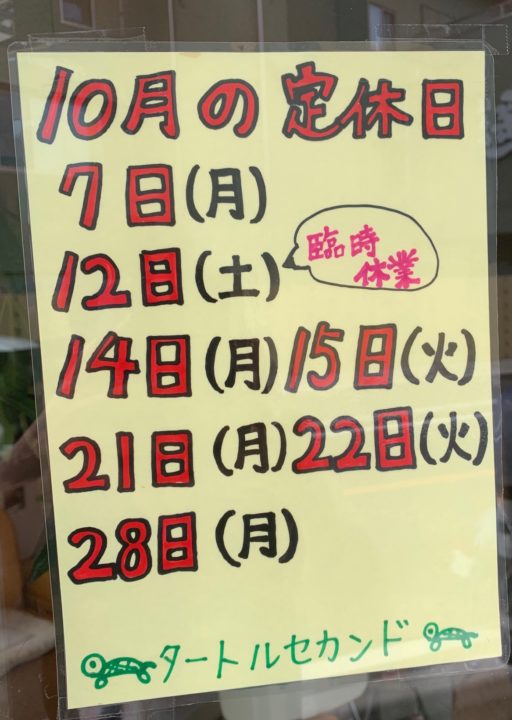 10月の定休日
7日(月)
12日(土)
臨時
休業
14日(月)15日(火)
21日(月)22日(火)
28日(月)
タートルセカンド